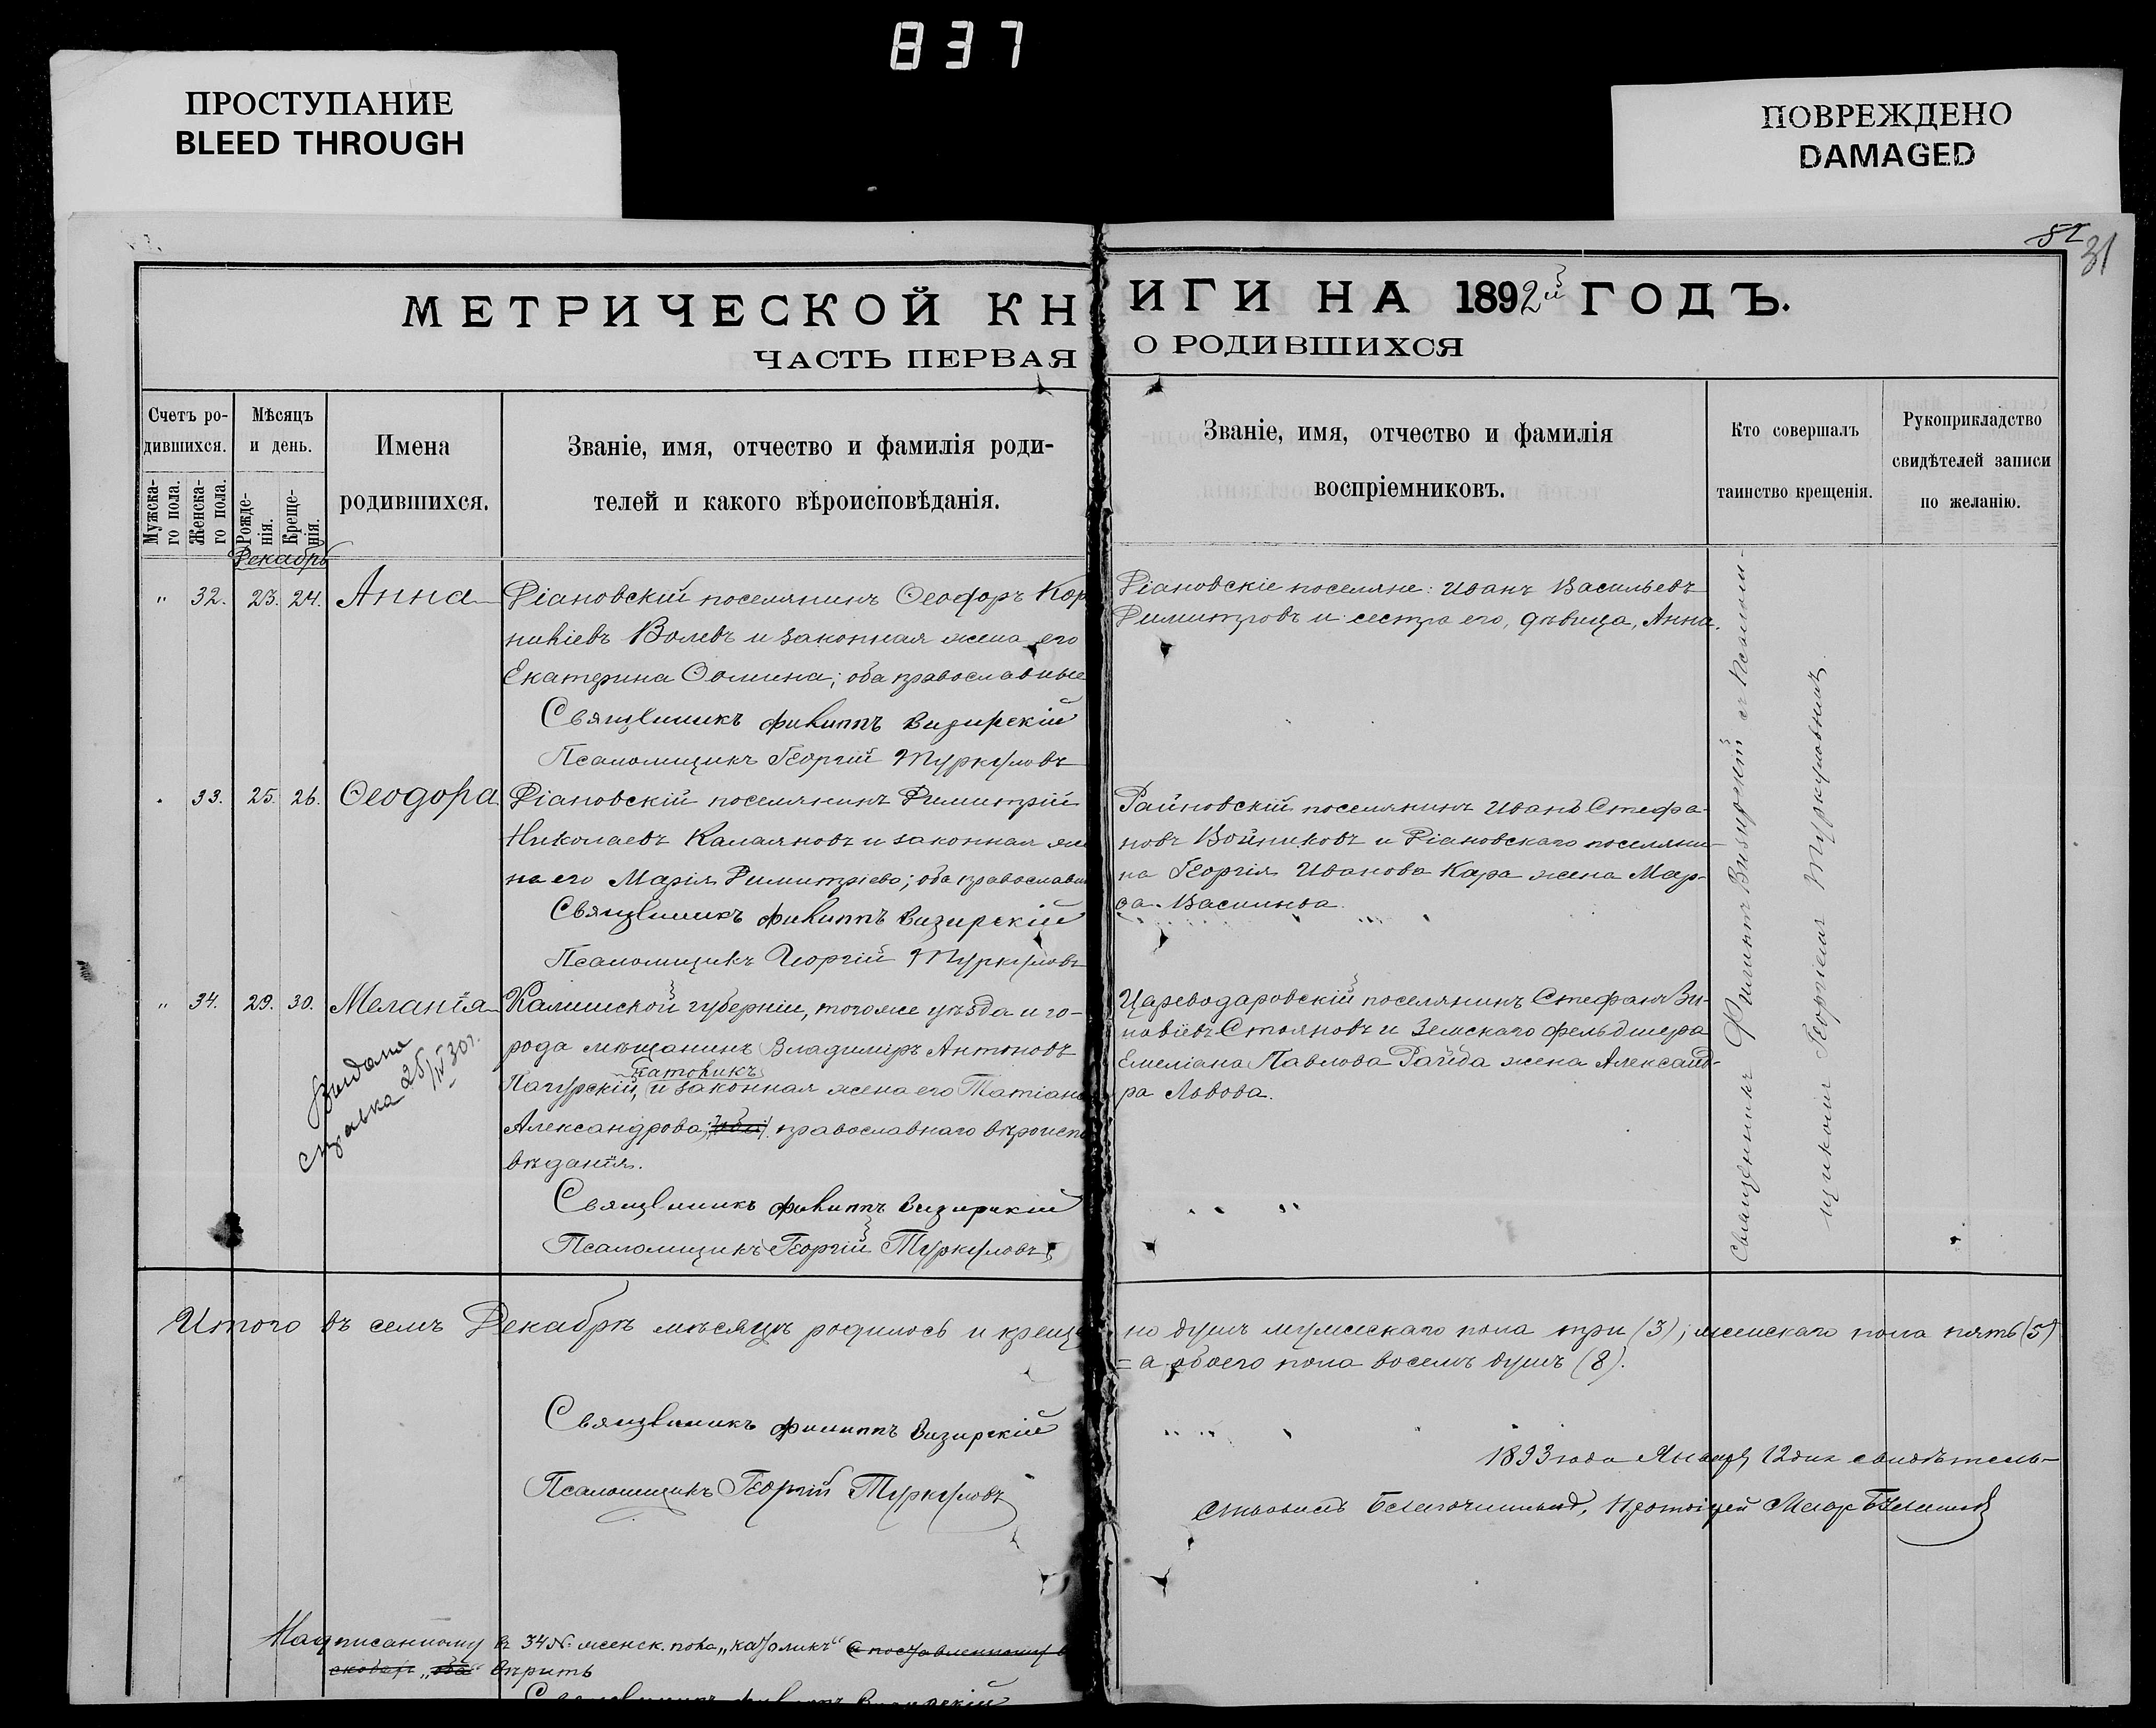 837
ПРОСТУПАНИЕ
BLEED THROUGH
ПОВРЕЖДЕНО
DAMAGED
31
МЕТРИЧЕСКОЙ КНИГИ НА 1892й ГОДЪ.
ЧАСТЬ ПЕРВАЯ О РОДИВШИХСЯ
Счетъ ро-
дившихся.
Мужска-
го пола.
Женска-
го пола.
Мѣсяцъ
и день.
Рожде-
нія.
Креще-
нія.
Имена
родившихся.
Званіе, имя, отчество и фамилія роди-
телей и какого вѣроисповѣданія.
Званіе, имя, отчество и фамилія
воспріемниковъ.
Кто совершалъ
таинство крещенія.
Рукоприкладство
свидѣтелей записи
по желанію.
Декабрь
" 32. 23. 24. Анна
Діановскій поселянинъ Ѳеодоръ Кор
ниліевъ Волевъ и законная жена его
Екатерина Ѳомина; оба православные
Священникъ Филиппъ Визирскій
Псаломщикъ Георгій Туркуловъ
Діановскіе поселяне: Иванъ Васильевъ
Димитровъ и сестра его, дѣвица, Анна.
33. 25. 26. Ѳеодора
Діановскій поселянинъ Димитрій
Николаевъ Калаяновъ и законная же
на его Марія Димитріева; оба православн
Священникъ Филиппъ Визирскій
Псаломщикъ Георгій Туркуловъ
Райновскій поселянинъ Иванъ Стефа-
новъ Войниковъ и Діановскаго поселяни-
на Георгія Иванова Кара жена Мар-
ѳа Васильева
" 34. 29. 30. Меланія
Выдана
справка 25/IV 30 г.
Калишской губерніи, того же уѣзда и го-
рода мѣщанинъ Владиміръ Антоновъ
католикъ
Пагурскій, и законная жена его Татіана
Александрова; оба православнаго вѣроиспо
вѣданія.
Священникъ Филиппъ Визирскій
Псаломщикъ Георгій Туркуловъ
Цареводаровскій поселянинъ Стефанъ Зи-
новіевъ Стояновъ и Земскаго фельдшера
Емеліана Павлова Райда жена Александ-
ра Львова.
Священникъ Филиппъ Визирскій съ Псалом-
щикомъ Георгіемъ Туркуловымъ.
Итого въ семъ Декабрѣ мѣсяцѣ родилось и креще
но душъ мужескаго пола три (3); женскаго пола пять (5)
= а обоего пола восемь душъ (8).
Священникъ Филиппъ Визирскій
Псаломщикъ Георгій Туркуловъ
1893 года Января 12 дня свидѣтель-
ствовалъ Благочинный, Протоіерей
Надписанному въ 34 №: женск. пола „католикъ" а поставленному в
скобах „оба" вѣрить
Священникъ Филиппъ Визирскій